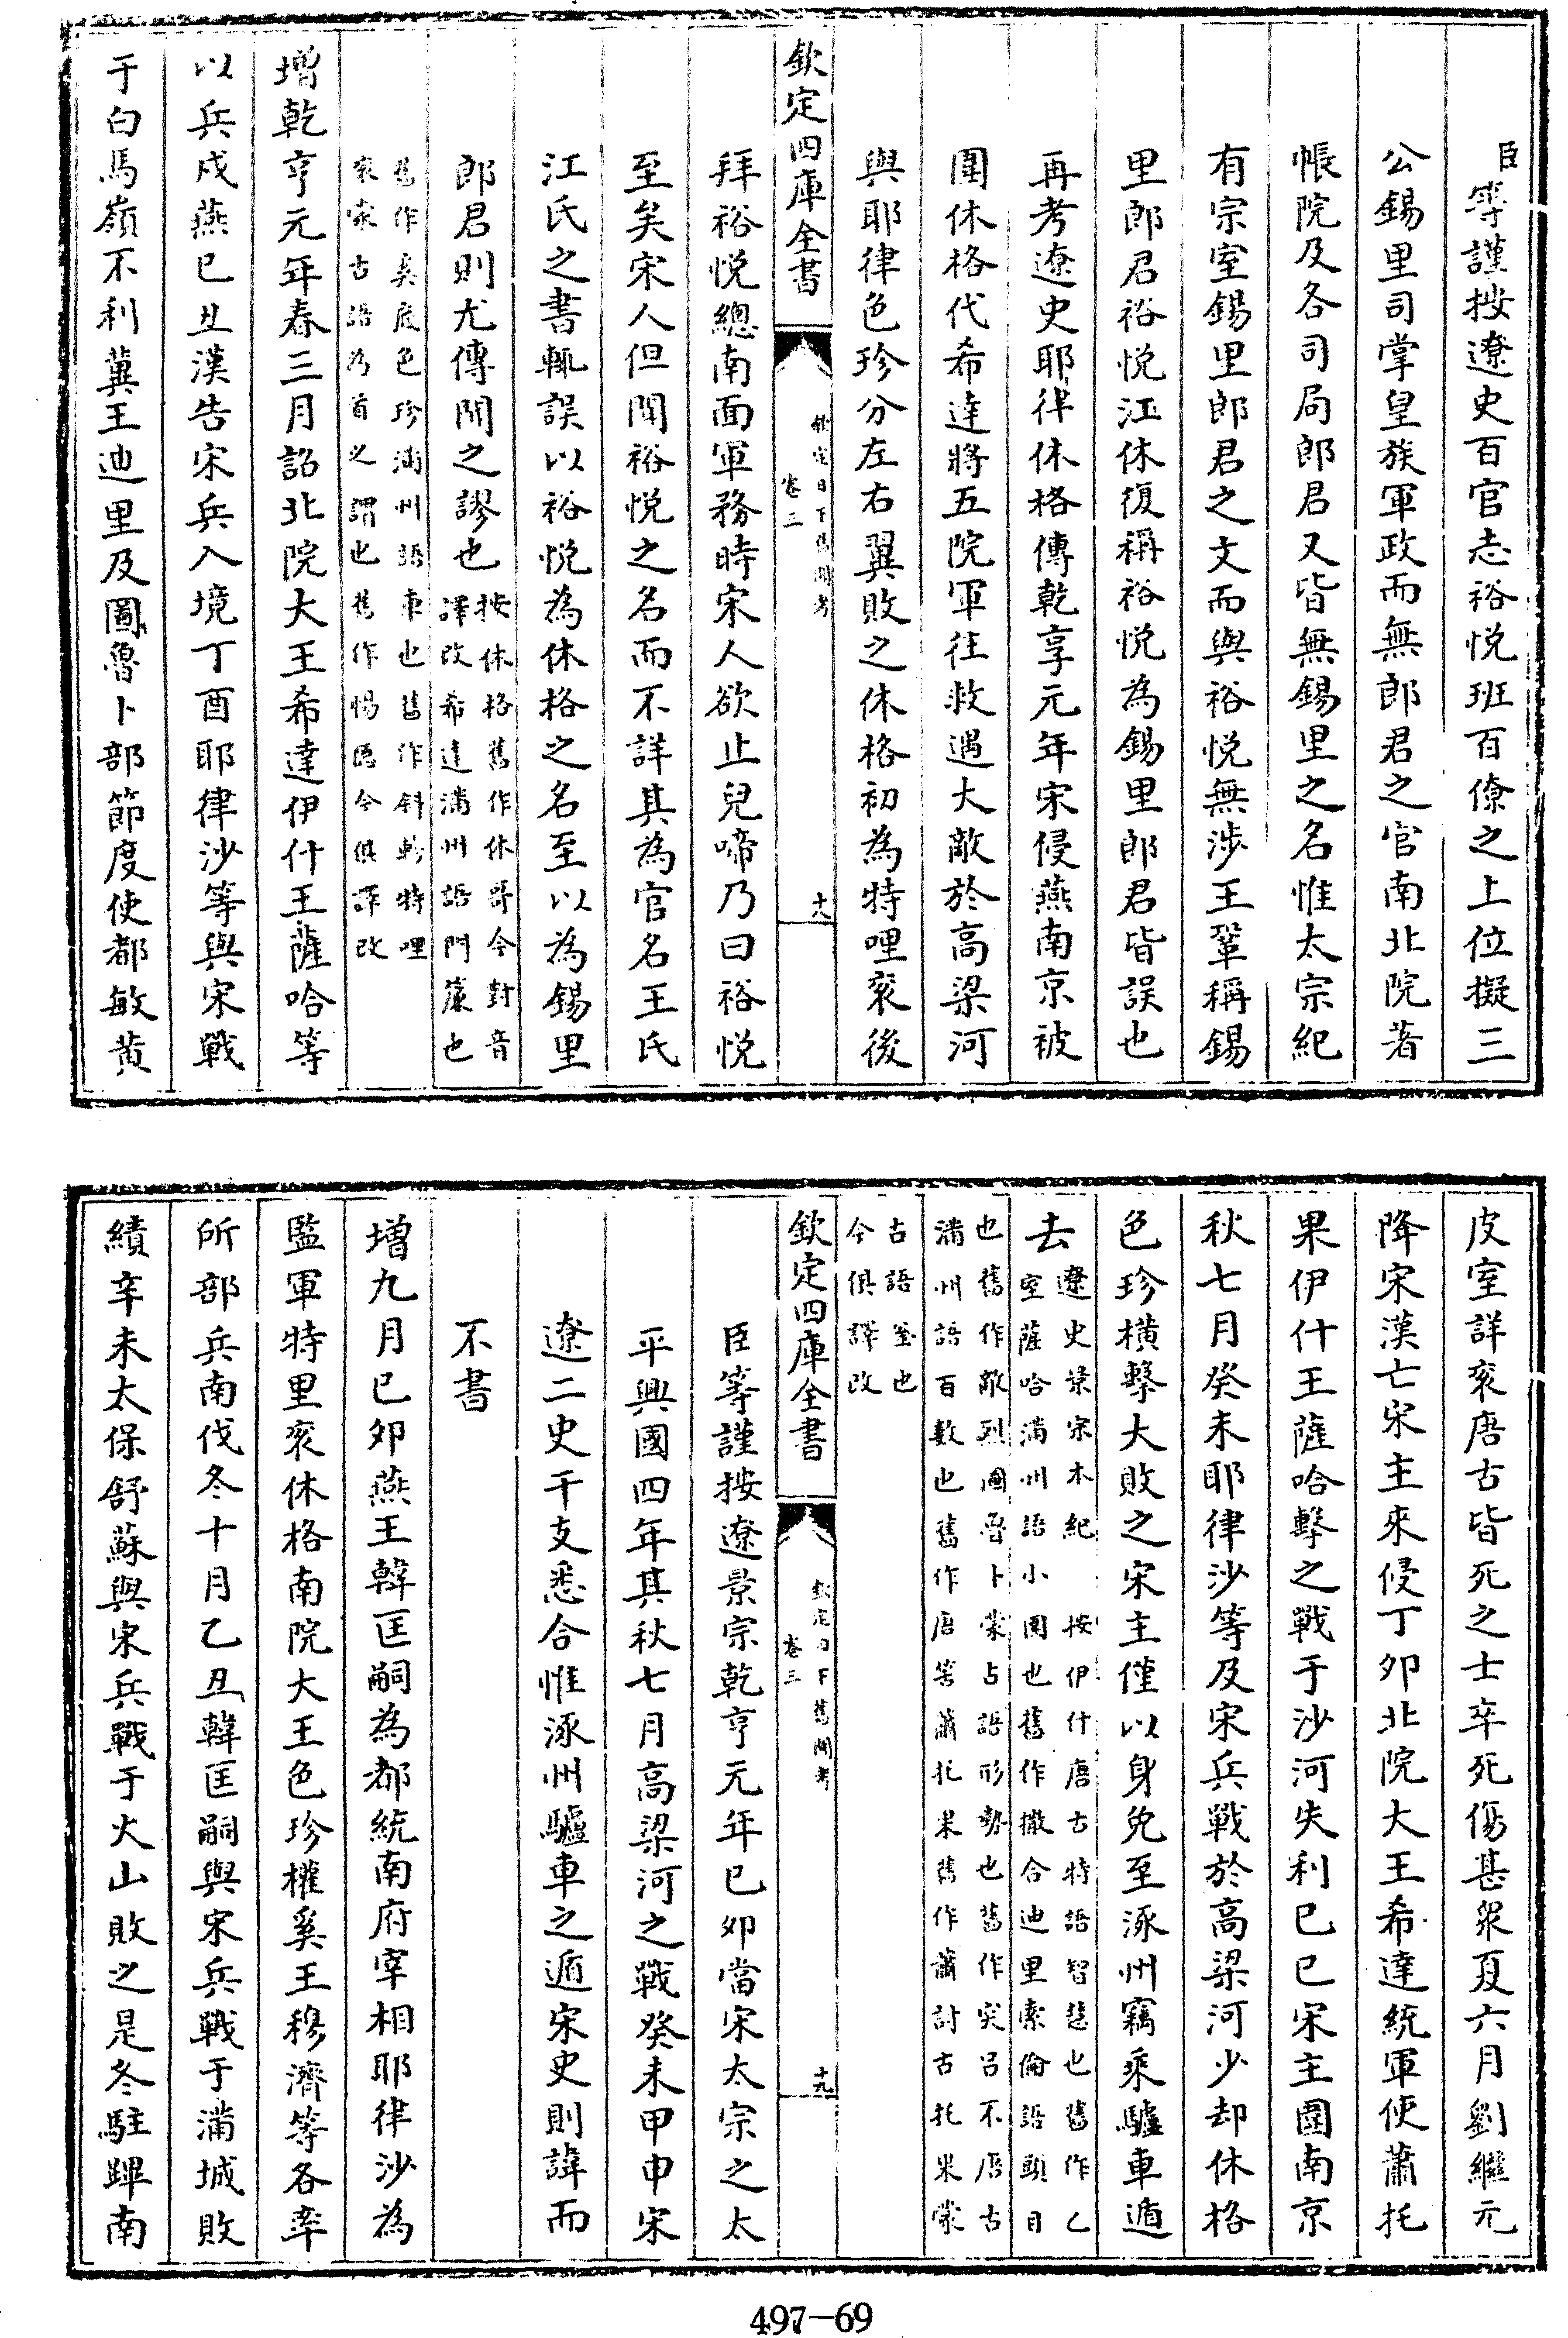 臣等謹按遼史百官志裕悦班百僚之上位擬三
公錫里司掌皇族軍政而無郎君之官南北院著
帳院及各司局郎君又皆無錫里之名惟太宗紀
有宗室錫里郎君之文而與裕悦無涉王鞏稱錫
里郎君裕悦江休復稱裕悦為錫里郎君皆誤也
再考遼史耶律休格傳乾亨元年宋侵燕南京被
圍休格代希達將五院軍往救遇大敵於高梁河
與耶律色珍分左右翼敗之休格初為特哩衮後
欽定四庫全書
欽定日下舊聞考
卷三
十八
拜裕悦總南面軍務時宋人欲止兒啼乃曰裕悦
至矣宋人但聞裕悦之名而不詳其為官名王氏
江氏之書輒誤以裕悦為休格之名至以為錫里
郎君則尤傳聞之謬也按休格舊作休哥今對音
譯改希達滿州語門簾也
舊作奚底色珍滿州語車也舊作斜軫特哩
衮蒙古語為首之謂也舊作惕隱今俱譯改
增乾亨元年春三月詔北院大王希達伊什王薩哈等
以兵戍燕己丑漢告宋兵入境丁酉耶律沙等與宋戰
于白馬嶺不利冀王迪里及圖魯卜部節度使都敏黃
皮室詳衮唐古皆死之士卒死傷甚衆夏六月劉繼元
降宋漢亡宋主來侵丁卯北院大王希達統軍使蕭托
果伊什王薩哈擊之戰于沙河失利己巳宋主圍南京
秋七月癸未耶律沙等及宋兵戰於高梁河少却休格
色珍橫擊大敗之宋主僅以身免至涿州竊乘驢車遁
去遼史景宗本紀 按伊什唐古特語智慧也舊作乙
室薩哈滿州語小圍也舊作撒合迪里索倫語頭目
也舊作敵烈圖魯卜蒙古語形勢也舊作突呂不唐古
滿州語百數也舊作唐筈蕭托果舊作蕭討古托果蒙
古語釜也
今俱譯改
欽定四庫全書
欽定日下舊聞考
卷三
十九
臣等謹按遼景宗乾亨元年己卯當宋太宗之太
平興國四年其秋七月高梁河之戰癸未甲申宋
遼二史干支悉合惟涿州驢車之遁宋史則諱而
不書
增九月己卯燕王韓匡嗣為都統南府宰相耶律沙為
監軍特里衮休格南院大王色珍權奚王穆濟等各率
所部兵南伐冬十月乙丑韓匡嗣與宋兵戰于滿城敗
績辛未太保舒蘇與宋兵戰于火山敗之是冬駐蹕南
497-69